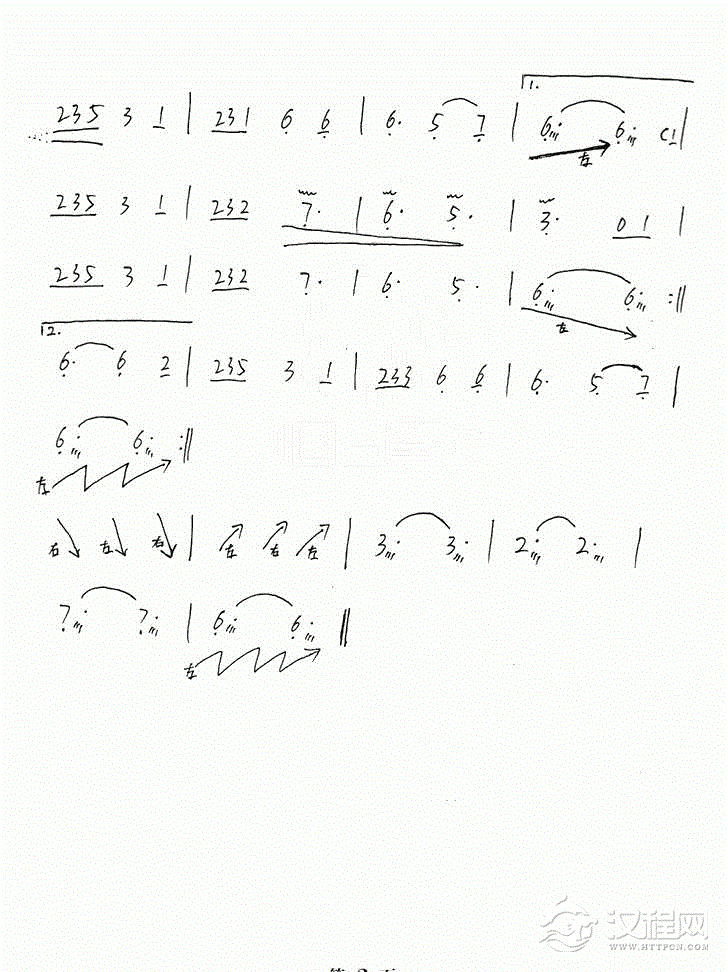 1.
235 3 1 | 231 6 6 | 6. 5 7 | 6 6
左
235 3 1 | 232 7. | 6. 5. | 3. 0 1 |
235 3 1 | 232 7. | 6. 5. | 6 6 :||
左
2.
6. 6 2 | 235 3 1 | 233 6 6 | 6. 5 7 |
6 6 :||
左
右 左 右 | 左 右 左 | 3 3 | 2 2 |
7 7 | 6 6 ||
左
汉程网
WWW.HTTPCN.COM